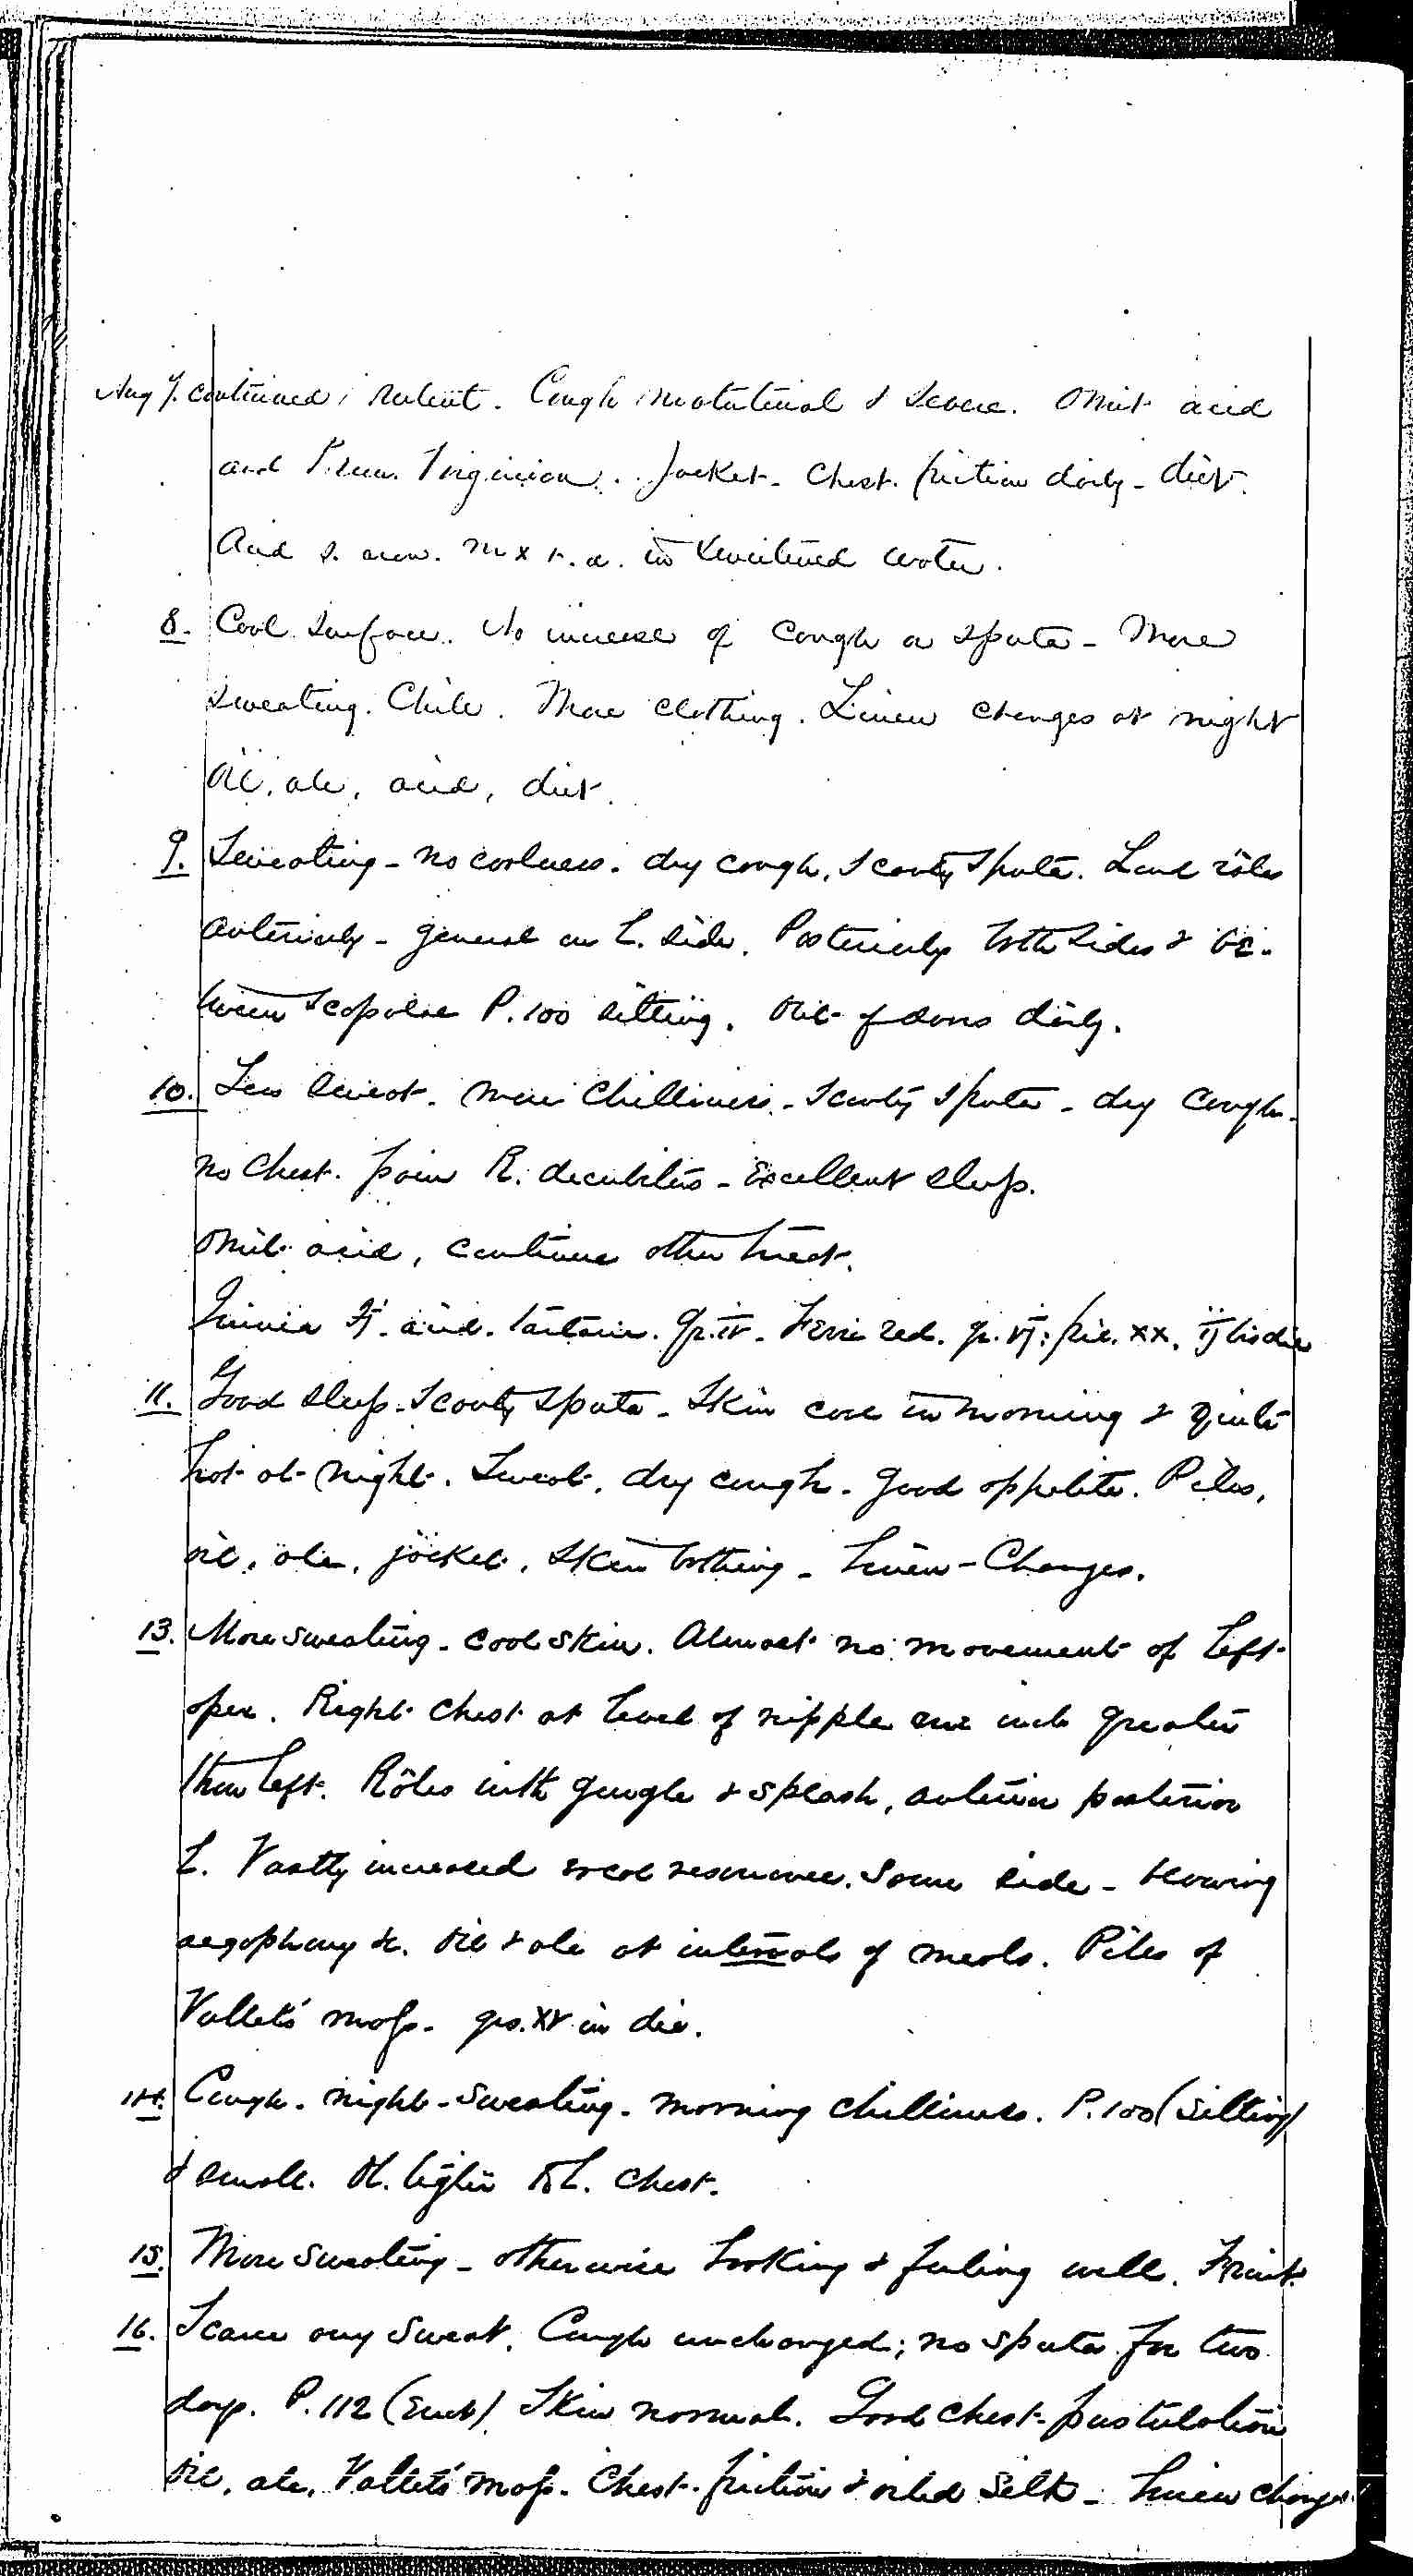 Aug 7. continued; Cough matutinal & severe. Omit acid
and Prun. Virginian. Jacket. Chest friction daily - diet.
Acid s. arom. m x t. d. in sweetened water.
8. Cool surface. No increase of cough or sputa - More
sweating. Chill. More clothing. Linen changes at night
Oil, ale, acid, diet.
9. Sweating - no coolness. dry cough, scanty sputa. Loud râles
anteriorly - general on L. side. Posteriorly both sides & be-
tween scapulae P. 100 sitting. daily.
10. Less sweat. more chilliness. - Scanty sputa - dry cough -
no chest pain R. decubitus - Excellent sleep.
Omit acid, continue other treat.
Quinia ʒj. acid. tartaric. gr. iv. Ferri red. gr. vj: pil. xx. ij bis die
11. Good sleep - Scanty sputa - Skin cool in morning & quite
hot at night. Sweat, dry cough. Good appetite. Piles,
oil, ale, jacket, skin bathing - Linen - Changes.
13. More sweating - cool skin. Almost no movement of left
apex. Right chest at level of nipple one inch greater
than left. Râles with gurgle & splash, anterior posterior
L. Vastly increased vocal resonance. Same side - blowing
aegophony &c. Oil & ale at intervals of meals. Piles of
Vallet's mass. grs. xv in die.
14. Cough. night-sweating. morning chilliness. P. 100 (sitting)
& small. Ol. tiglii to L. chest.
15. More sweating - otherwise looking & feeling well. Fruit.
16. Scarce any sweat. Cough unchanged; no sputa for two
days. P. 112 (Erect). Skin normal. Good chest-pustulation
Oil, ale, Vallet's mass. Chest-friction & oiled silk - Linen changes.